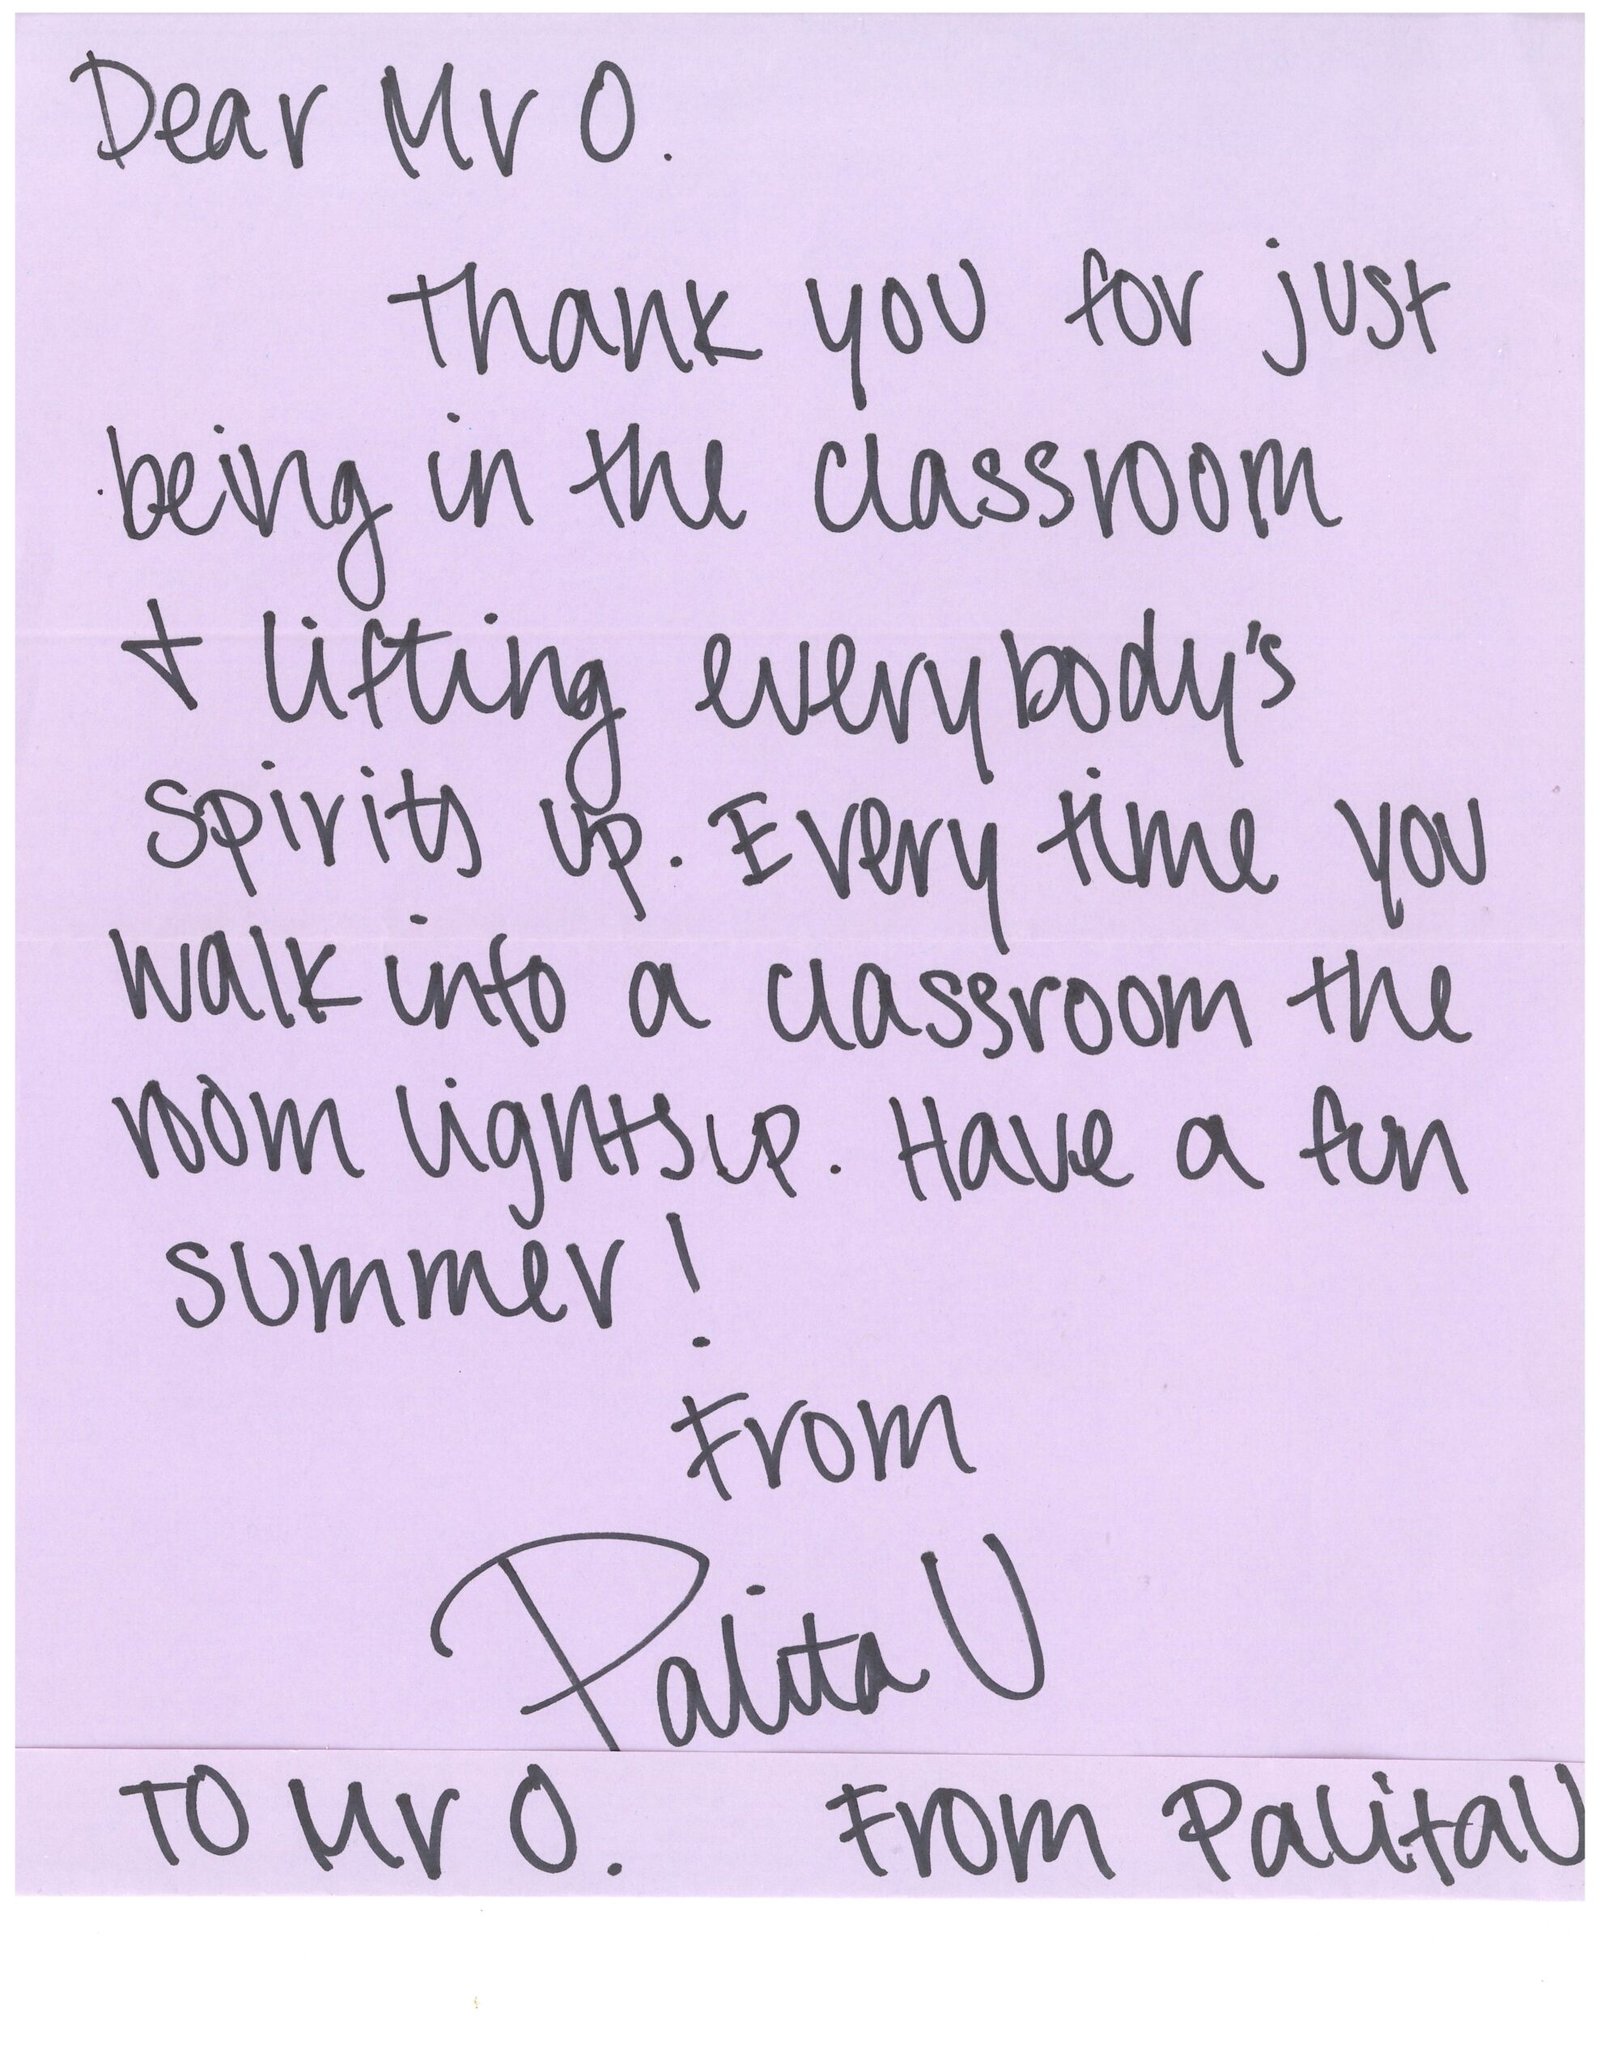 Dear Mr O.
Thank you for just
being in the classroom
+ lifting everybody's
spirits up. Every time you
walk into a classroom the
room lights up. Have a fun
summer!
From
Palita U
TO Mr O. From Palita U